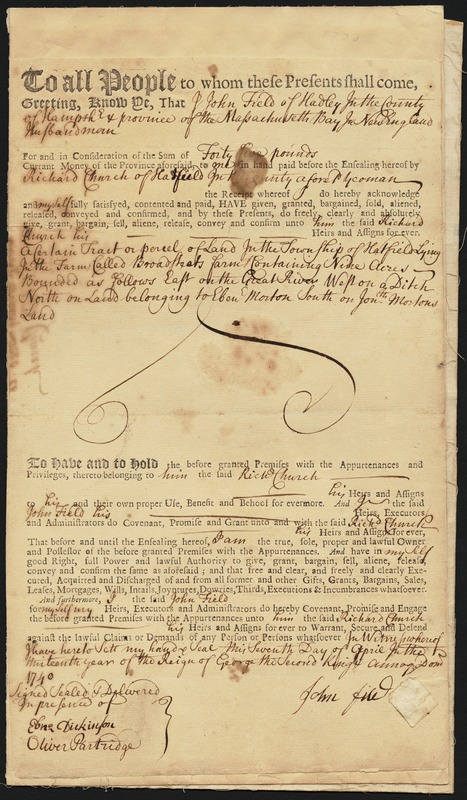 To all People to whom these Presents shall come,
Greeting, Know Ye, That I John Field of Hadley In the County
of Hampshr & province of the Massachusetts Bay In New England
Husbandman
For and in Consideration of the Sum of Forty five pounds
Currant Money of the Province aforesaid, to me in hand paid before the Ensealing hereof by
Richard Church of Hatfield In County aforesd yeoman
the Receipt whereof I do hereby acknowledge
and my self fully satisfyed, contented and paid, HAVE given, granted, bargained, sold, aliened,
released, conveyed and confirmed, and by these Presents, do freely, clearly and absolutely
give, grant, bargain, sell, aliene, release, convey and confirm unto him the said Richard
Church his Heirs and Assigns for ever.
A Certain Tract or porcel of Land In the Township of Hatfield Lying
In the Farm Called Broadstreets farm Containing Nine Acres
Bounded as follows East on the Great River West on a Ditch
North on Land belonging to Eben Morton South on Jonth Mortons
Land
To Have and to Hold the before granted Premises with the Appurtenances and
Privileges, thereto belonging to him the said Richd Church
his Heirs and Assigns
to his and their own proper Use, Benefit and Behoof for evermore. And I the said
John Field his Heirs, Executors
and Administrators do Covenant, Promise and Grant unto and with the said Richd Church
his Heirs and Assigns for ever,
That before and until the Ensealing hereof, I am the true, sole, proper and lawful Owner
and Possessor of the before granted Premises with the Appurtenances. And have in my self
good Right, full Power and lawful Authority to give, grant, bargain, sell, aliene, release,
convey and confirm the same as aforesaid; and that free and clear, and freely and clearly Exe-
cuted, Acquitted and Discharged of and from all former and other Gifts, Grants, Bargains, Sales,
Leases, Mortgages, Wills, Intails, Joyntures, Dowries, Thirds, Executions & Incumbrances whatsoever.
And furthermore, I the said John Field
for my self my Heirs, Executors and Administrators do hereby Covenant, Promise and Engage
the before granted Premises with the Appurtenances unto him the said Richard Church
his Heirs and Assigns for ever to Warrant, Secure and Defend
against the lawful Claims or Demands of any Person or Persons whatsoever In Witness whereof
I have hereto Sett my hand & Seal this Seventh Day of April In the
thirteenth year of the Reign of George the Second King &c Annoq Dom
1740
Signed Sealed & Delivered
In presence of
John field
Ebnr Dickinson
Oliver Partridge